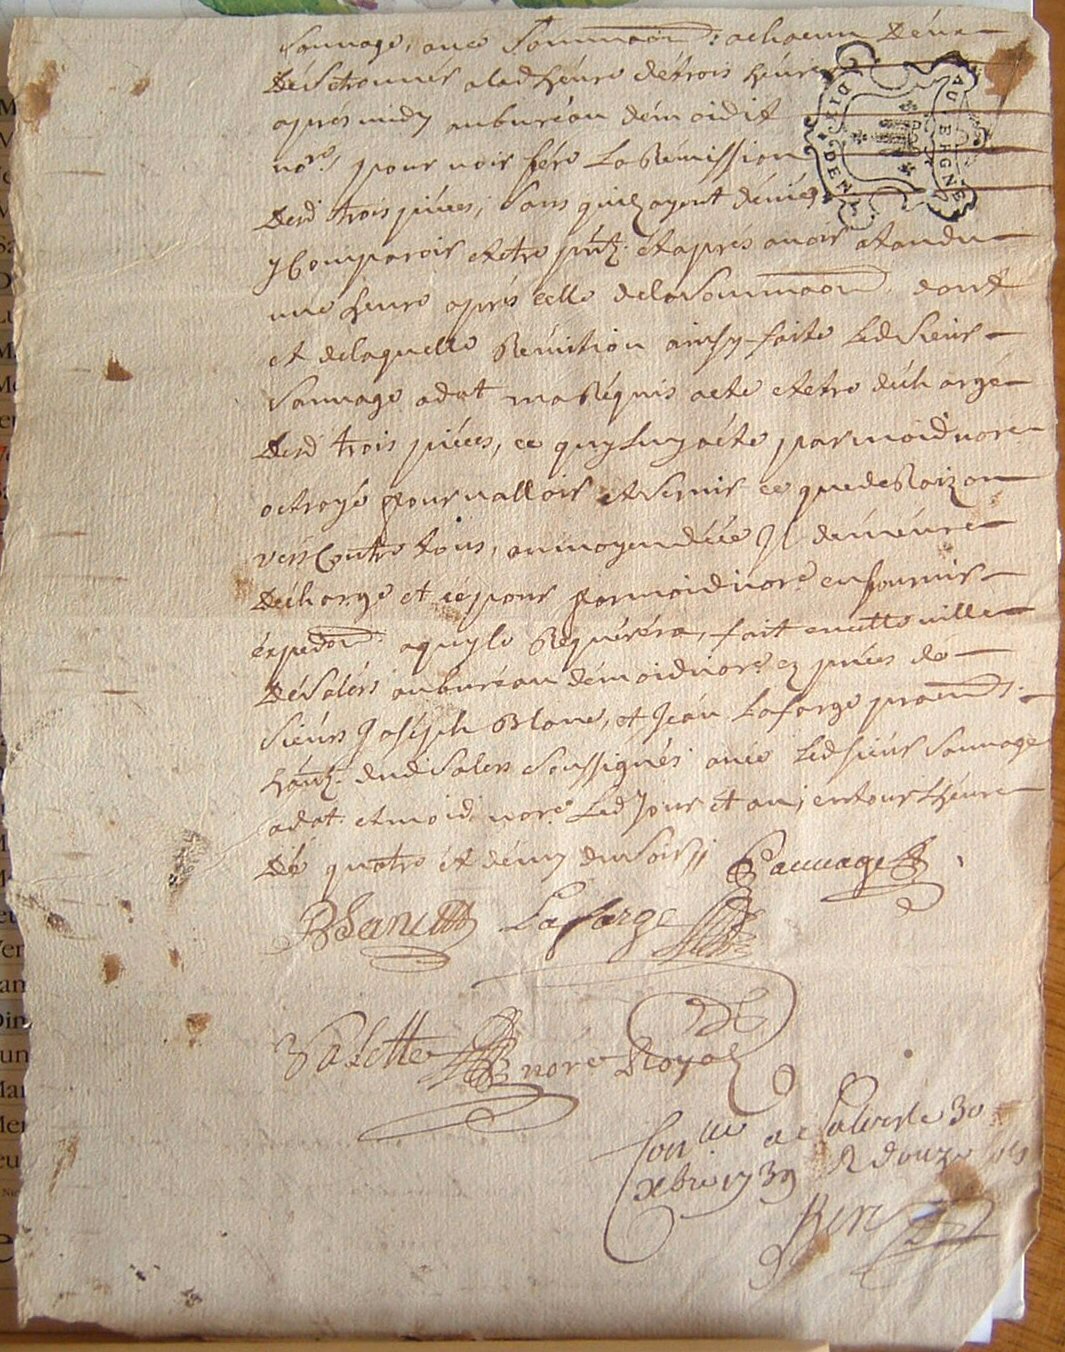 Sauvage, avec Sommaon: achacun Deux
De Se trouver alad heure de trois heures
apres midy au bureau de moidit
nore, pour voir fere La Remission
Desd trois pieces, Sans quils ayent
y Comparoir et etre pnts. et apres avoir atandu
une heure apres celle de la Sommaon, dont
et de laquelle Remition ainsy faite Led Sieur
Sauvage adat ma Requis acte et etre decharge
Desd trois pieces, ce quy luy a ete par moid nore
octroye pour valloir et Servir ce que de Raizon
vers Contre tous, au moyen de ce Il demeure
Decharge et ce pour par moid nore en fournir
expedon. a quy le Requerera, fait en cette ville
De Salers au bureau de moid nore ez pnces de
Sieurs Joseph Blanc, et Jean Lafarge
hants. dud Salers Soussignes avec Led Sieur Sauvage
adat. et moid. nore. Led Jour et an, entour L'heure
De quatre et demy du Soir // Sauvage
Blanc Lafarge
Valette nore Royal
Conlle a Salers le 30
Xbre 1739 R douze sols
AUVERGNE
DIX DEN